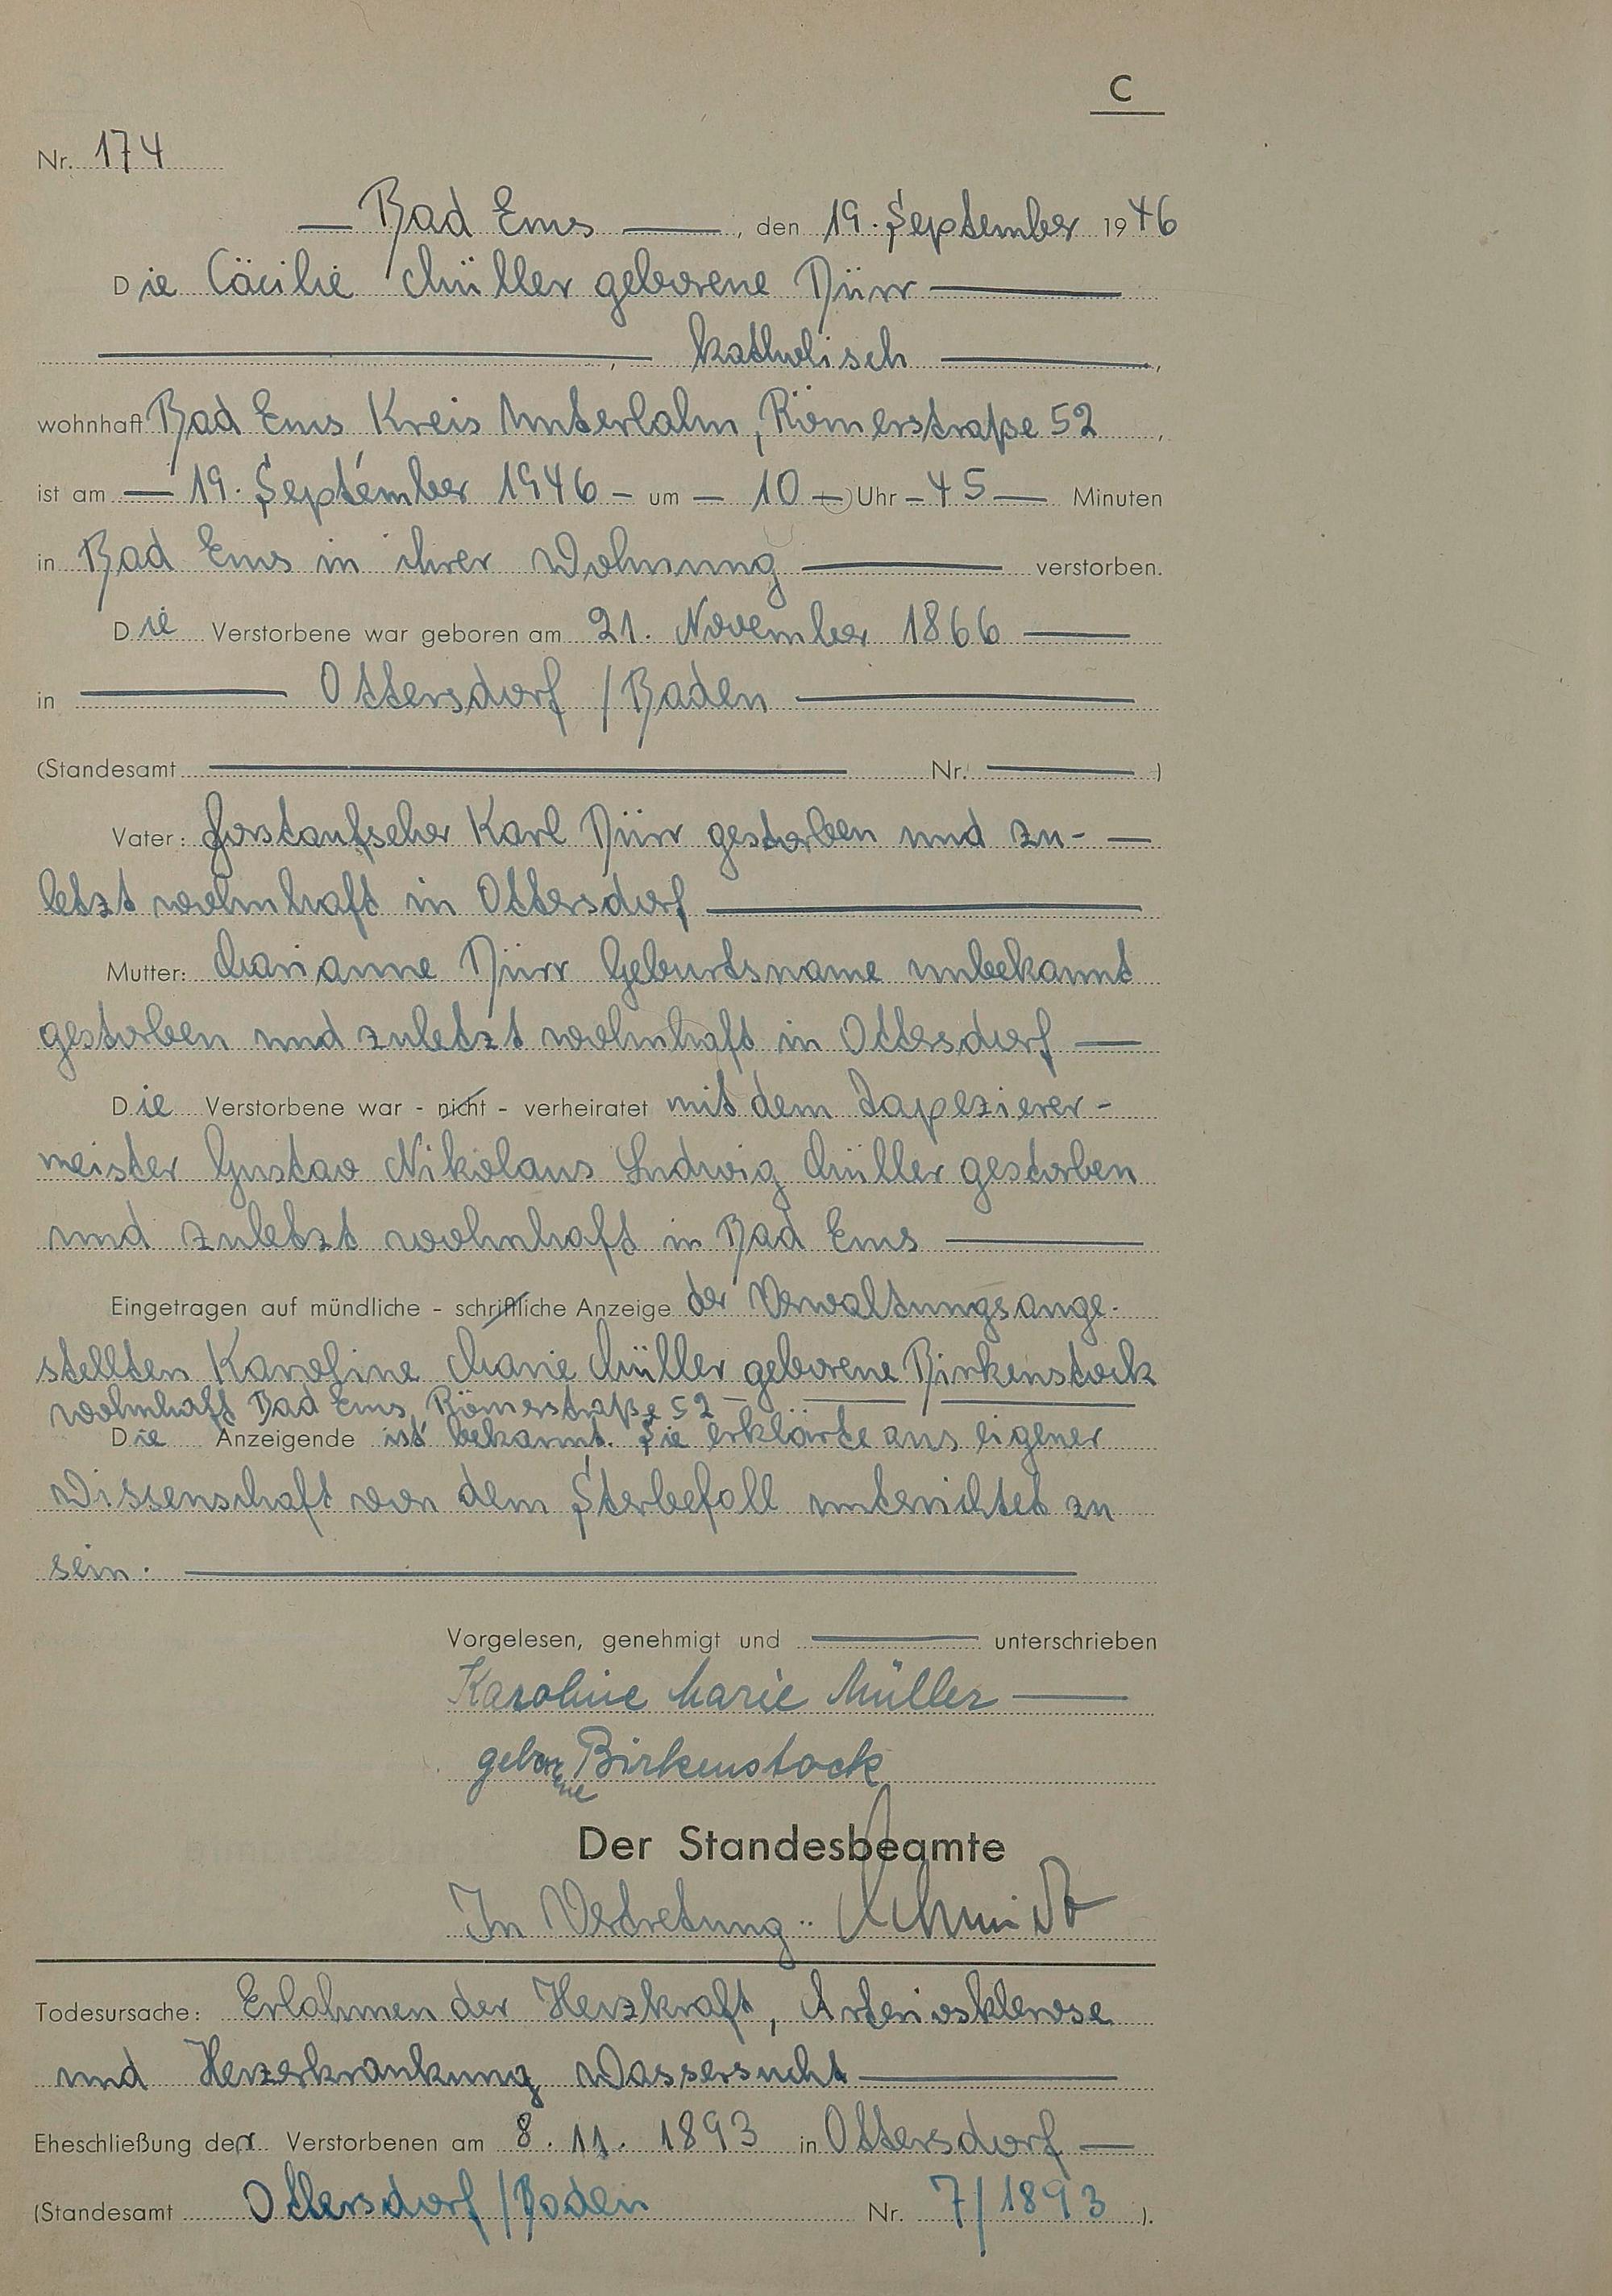 C
Nr. 174
— Bad Ems —, den 19. September 1946
Die Cäcilie Müller geborene Dürr —
—, katholisch —,
wohnhaft Bad Ems Kreis Unterlahn, Römerstraße 52,
ist am — 19. September 1946 – um — 10 — Uhr – 45 — Minuten
in Bad Ems in ihrer Wohnung — verstorben.
Die Verstorbene war geboren am 21. November 1866 —
in — Ottersdorf / Baden —
(Standesamt — Nr. — )
Vater: Forstaufseher Karl Dürr gestorben und zu- —
letzt wohnhaft in Ottersdorf —
Mutter: Marianne Dürr Geburtsname unbekannt
gestorben und zuletzt wohnhaft in Ottersdorf —
Die Verstorbene war - nicht - verheiratet mit dem Tapezierer-
meister Gustav Nikolaus Ludwig Müller gestorben
und zuletzt wohnhaft in Bad Ems —
Eingetragen auf mündliche - schriftliche Anzeige der Verwaltungsange-
stellten Karoline Marie Müller geborene Birkenstock
wohnhaft Bad Ems, Römerstraße 52 —
Die Anzeigende ist bekannt. Sie erklärte aus eigener
Wissenschaft von dem Sterbefall unterrichtet zu
sein. —
Vorgelesen, genehmigt und — unterschrieben
Karoline Marie Müller —
geborene Birkenstock
Der Standesbeamte
In Vertretung: Schmidt
Todesursache: Erlahmen der Herzkraft, Arteriosklerose
und Herzerkrankung Wassersucht —
Eheschließung der Verstorbenen am 8. 11. 1893 in Ottersdorf —
(Standesamt Ottersdorf / Baden Nr. 7/1893 ).